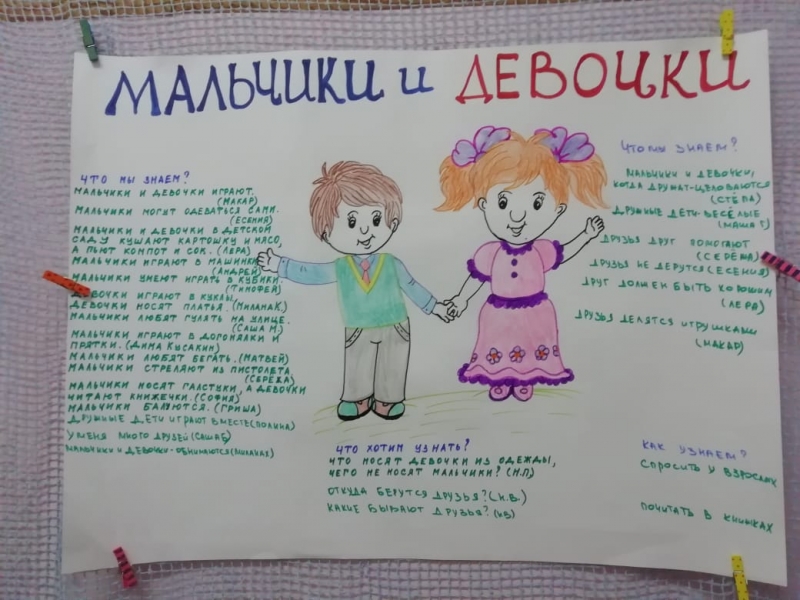 МАЛЬЧИКИ и ДЕВОЧКИ
ЧТО МЫ ЗНАЕМ?
МАЛЬЧИКИ И ДЕВОЧКИ ИГРАЮТ.
(МАКАР)
МАЛЬЧИКИ МОГУТ ОДЕВАТЬСЯ САМИ.
(ЕСЕНИЯ)
МАЛЬЧИКИ И ДЕВОЧКИ В ДЕТСКОЙ
САДУ КУШАЮТ КАРТОШКУ И МЯСО,
А ПЬЮТ КОМПОТ И СОК. (ЛЕРА)
МАЛЬЧИКИ ИГРАЮТ В МАШИНКИ
(АНДРЕЙ)
МАЛЬЧИКИ УМЕЮТ ИГРАТЬ В КУБИКИ.
(ТИМОФЕЙ)
ДЕВОЧКИ ИГРАЮТ В КУКЛЫ.
ДЕВОЧКИ НОСЯТ ПЛАТЬЯ. (МИЛАНА К.)
МАЛЬЧИКИ ЛЮБЯТ ГУЛЯТЬ НА УЛИЦЕ.
(САША М.)
МАЛЬЧИКИ ИГРАЮТ В ДОГОНЯЛКИ И
ПРЯТКИ. (ДИМА КЫСАКИН)
МАЛЬЧИКИ ЛЮБЯТ БЕГАТЬ. (МАТВЕЙ)
МАЛЬЧИКИ СТРЕЛЯЮТ ИЗ ПИСТОЛЕТА.
(СЕРЁЖА)
МАЛЬЧИКИ НОСЯТ ГАЛСТУКИ, А ДЕВОЧКИ
ЧИТАЮТ КНИЖЕЧКИ. (СОФИЯ)
МАЛЬЧИКИ БАЛУЮТСЯ. (ГРИША)
ДРУЖНЫЕ ДЕТИ ИГРАЮТ ВМЕСТЕ (ПОЛИНА)
У МЕНЯ МНОГО ДРУЗЕЙ (САША Б)
МАЛЬЧИКИ И ДЕВОЧКИ-ОБНИМАЮТСЯ (МИЛАНА)
ЧТО МЫ ЗНАЕМ?
МАЛЬЧИКИ И ДЕВОЧКИ,
КОГДА ДРУЖАТ-ЦЕЛОВАЮТСЯ
(СТЁПА)
ДРУЖНЫЕ ДЕТИ-ВЕСЁЛЫЕ
(МАША Т)
ДРУЗЬЯ ДРУГ ПОМОГАЮТ
(СЕРЁЖА)
ДРУЗЬЯ НЕ ДЕРУТСЯ (ЕСЕНИЯ)
ДРУГ ДОЛЖЕН БЫТЬ ХОРОШИМ
(ЛЕРА)
ДРУЗЬЯ ДЕЛЯТСЯ ИГРУШКАМИ
(МАКАР)
ЧТО ХОТИМ УЗНАТЬ?
ЧТО НОСЯТ ДЕВОЧКИ ИЗ ОДЕЖДЫ,
ЧЕГО НЕ НОСЯТ МАЛЬЧИКИ? (Н.П)
ОТКУДА БЕРУТСЯ ДРУЗЬЯ? (Н.В.)
КАКИЕ БЫВАЮТ ДРУЗЬЯ? (НВ)
КАК УЗНАЕМ?
СПРОСИТЬ У ВЗРОСЛЫХ
ПОЧИТАТЬ В КНИЖКАХ